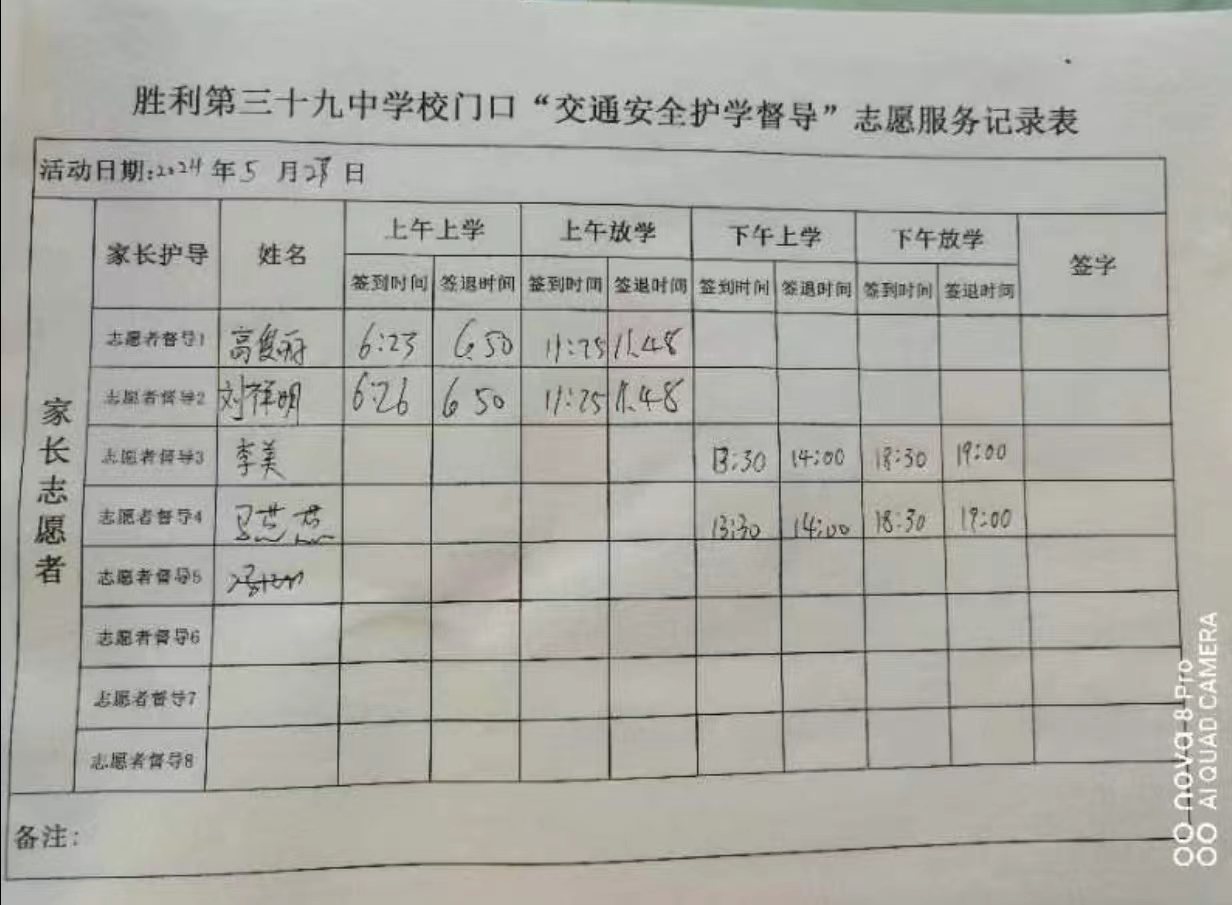 胜利第三十九中学校门口“交通安全护学督导”志愿服务记录表
活动日期:2024年5月2 日
家长志愿者 家长护导 姓名 上午上学 上午放学 下午上学 下午放学 签字
签到时间 签退时间 签到时间 签退时间 签到时间 签退时间 签到时间 签退时间
志愿者督导1 高俊 6:23 6 50 11:25 11.48
志愿者督导2 刘祥明 6:26 6 50 11:25 11.48
志愿者督导3 李美 13:30 14:00 18:30 19:00
志愿者督导4 13:30 14:00 18:30 19:00
志愿者督导5
志愿者督导6
志愿者督导7
志愿者督导8
备注:
nova 8 Pro
AI QUAD CAMERA